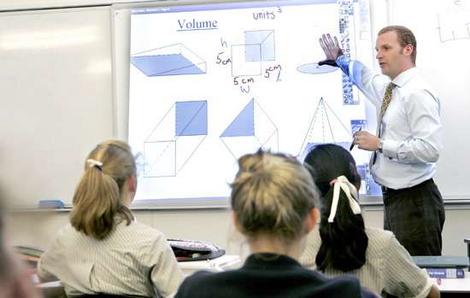 Volume
units³
h
5cm
5cm
5cm
L
W